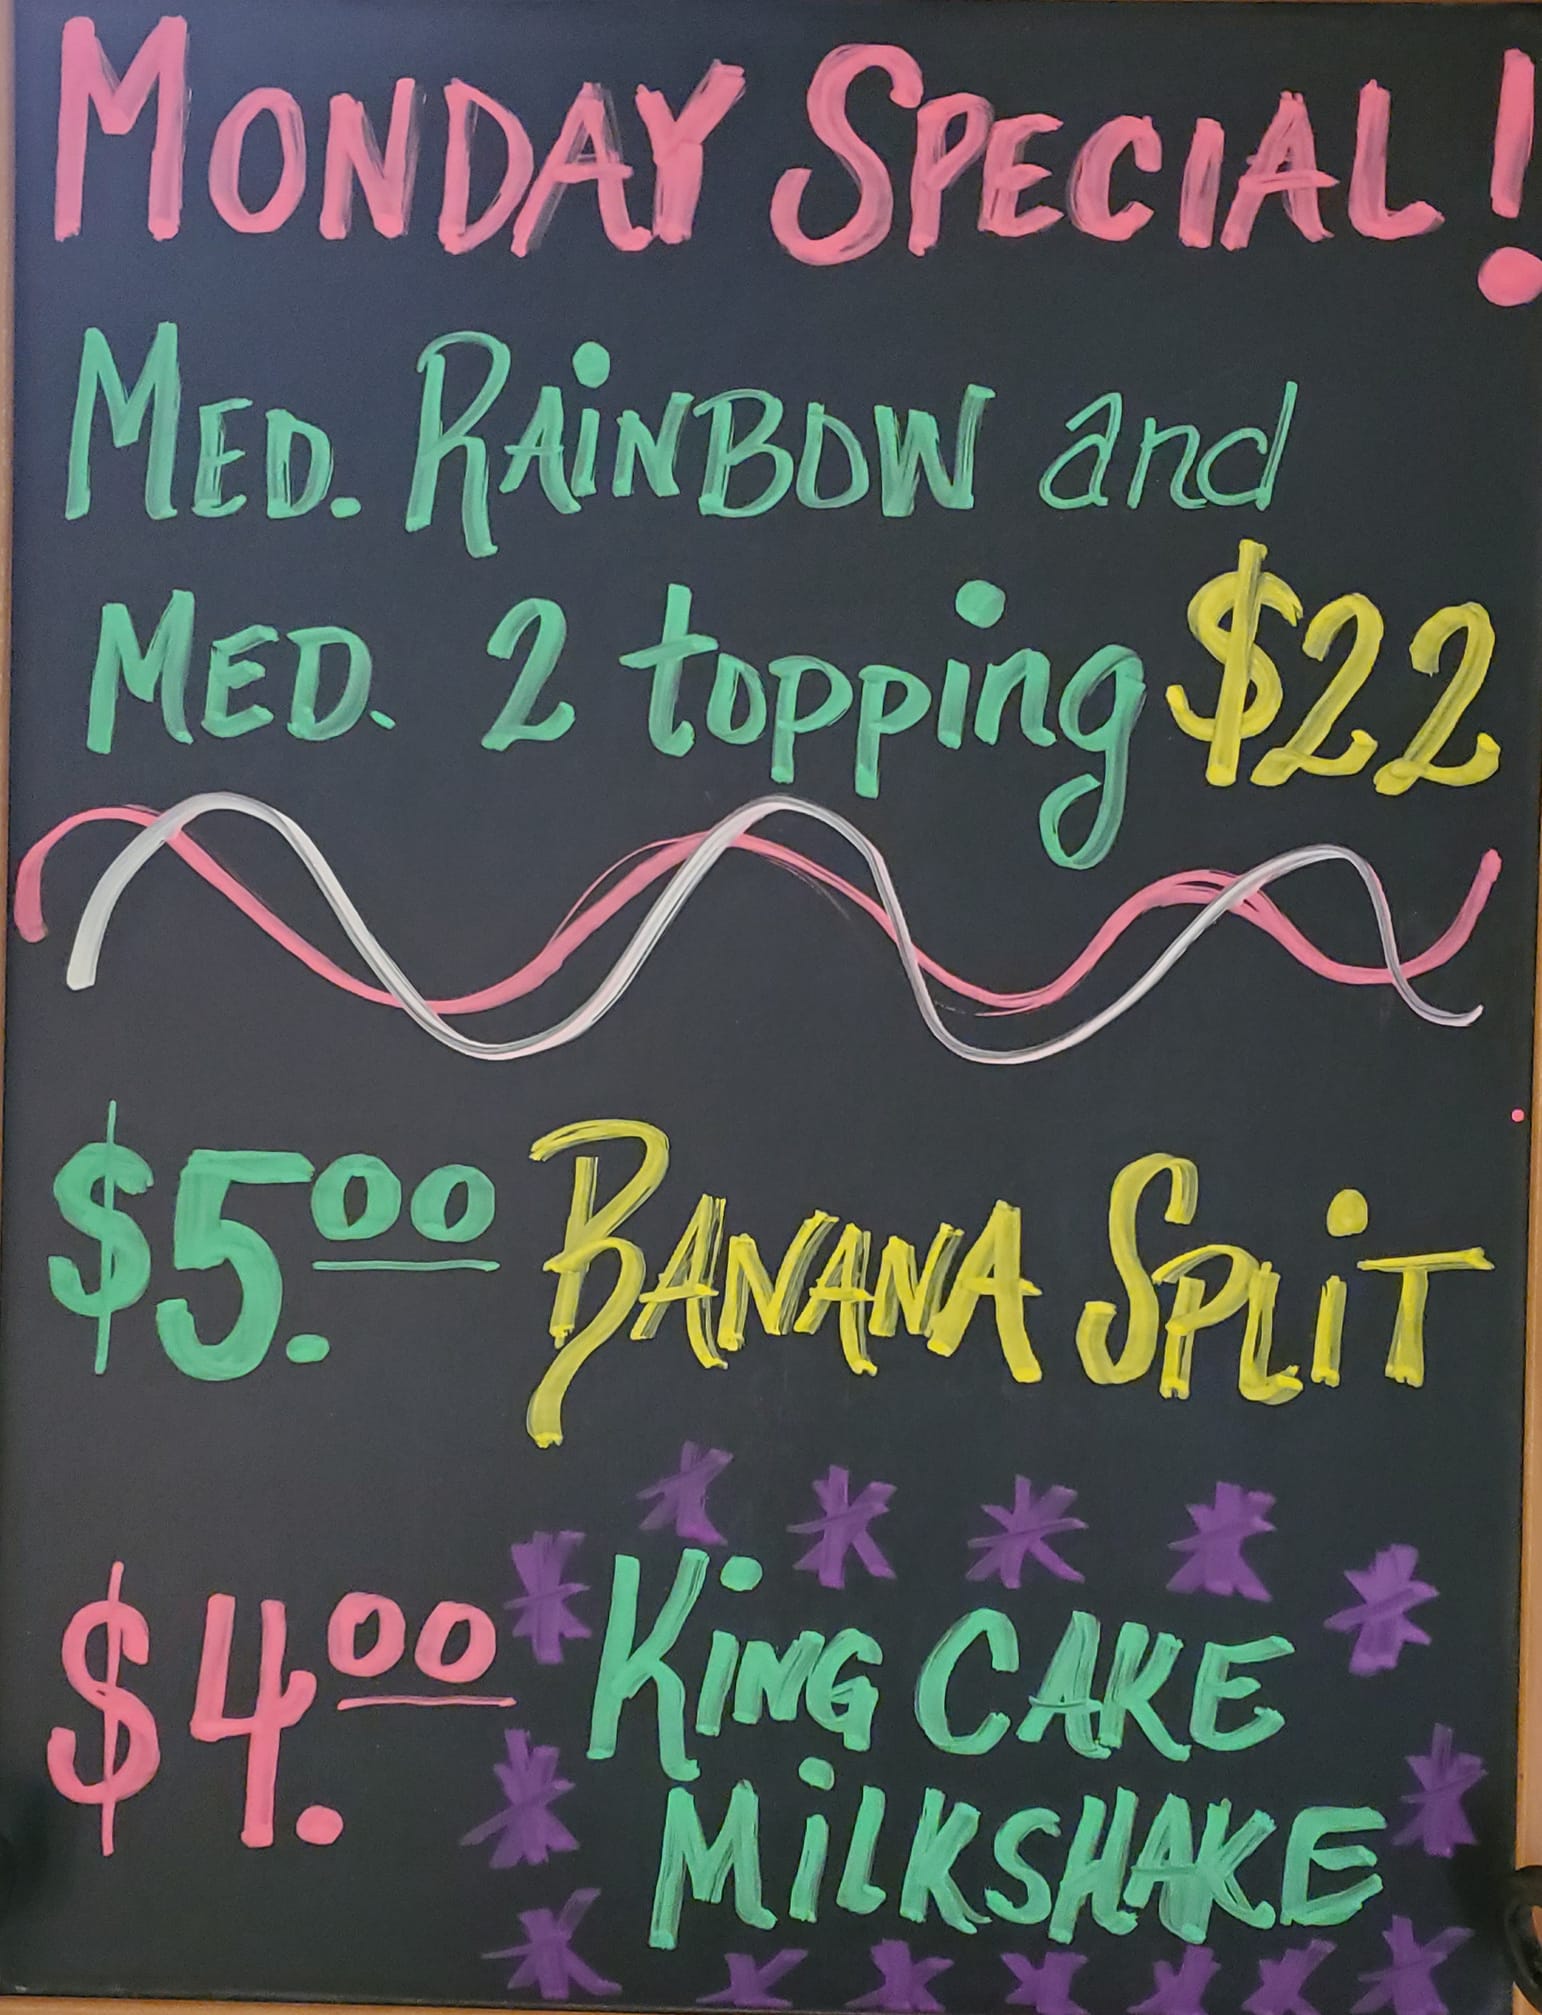 MONDAY SPECIAL!
MED. RAiNBOW and
MED. 2 topping $22
$5.00 BANANA SPLiT
$4.00 KiNG CAKE
MiLKSHAKE